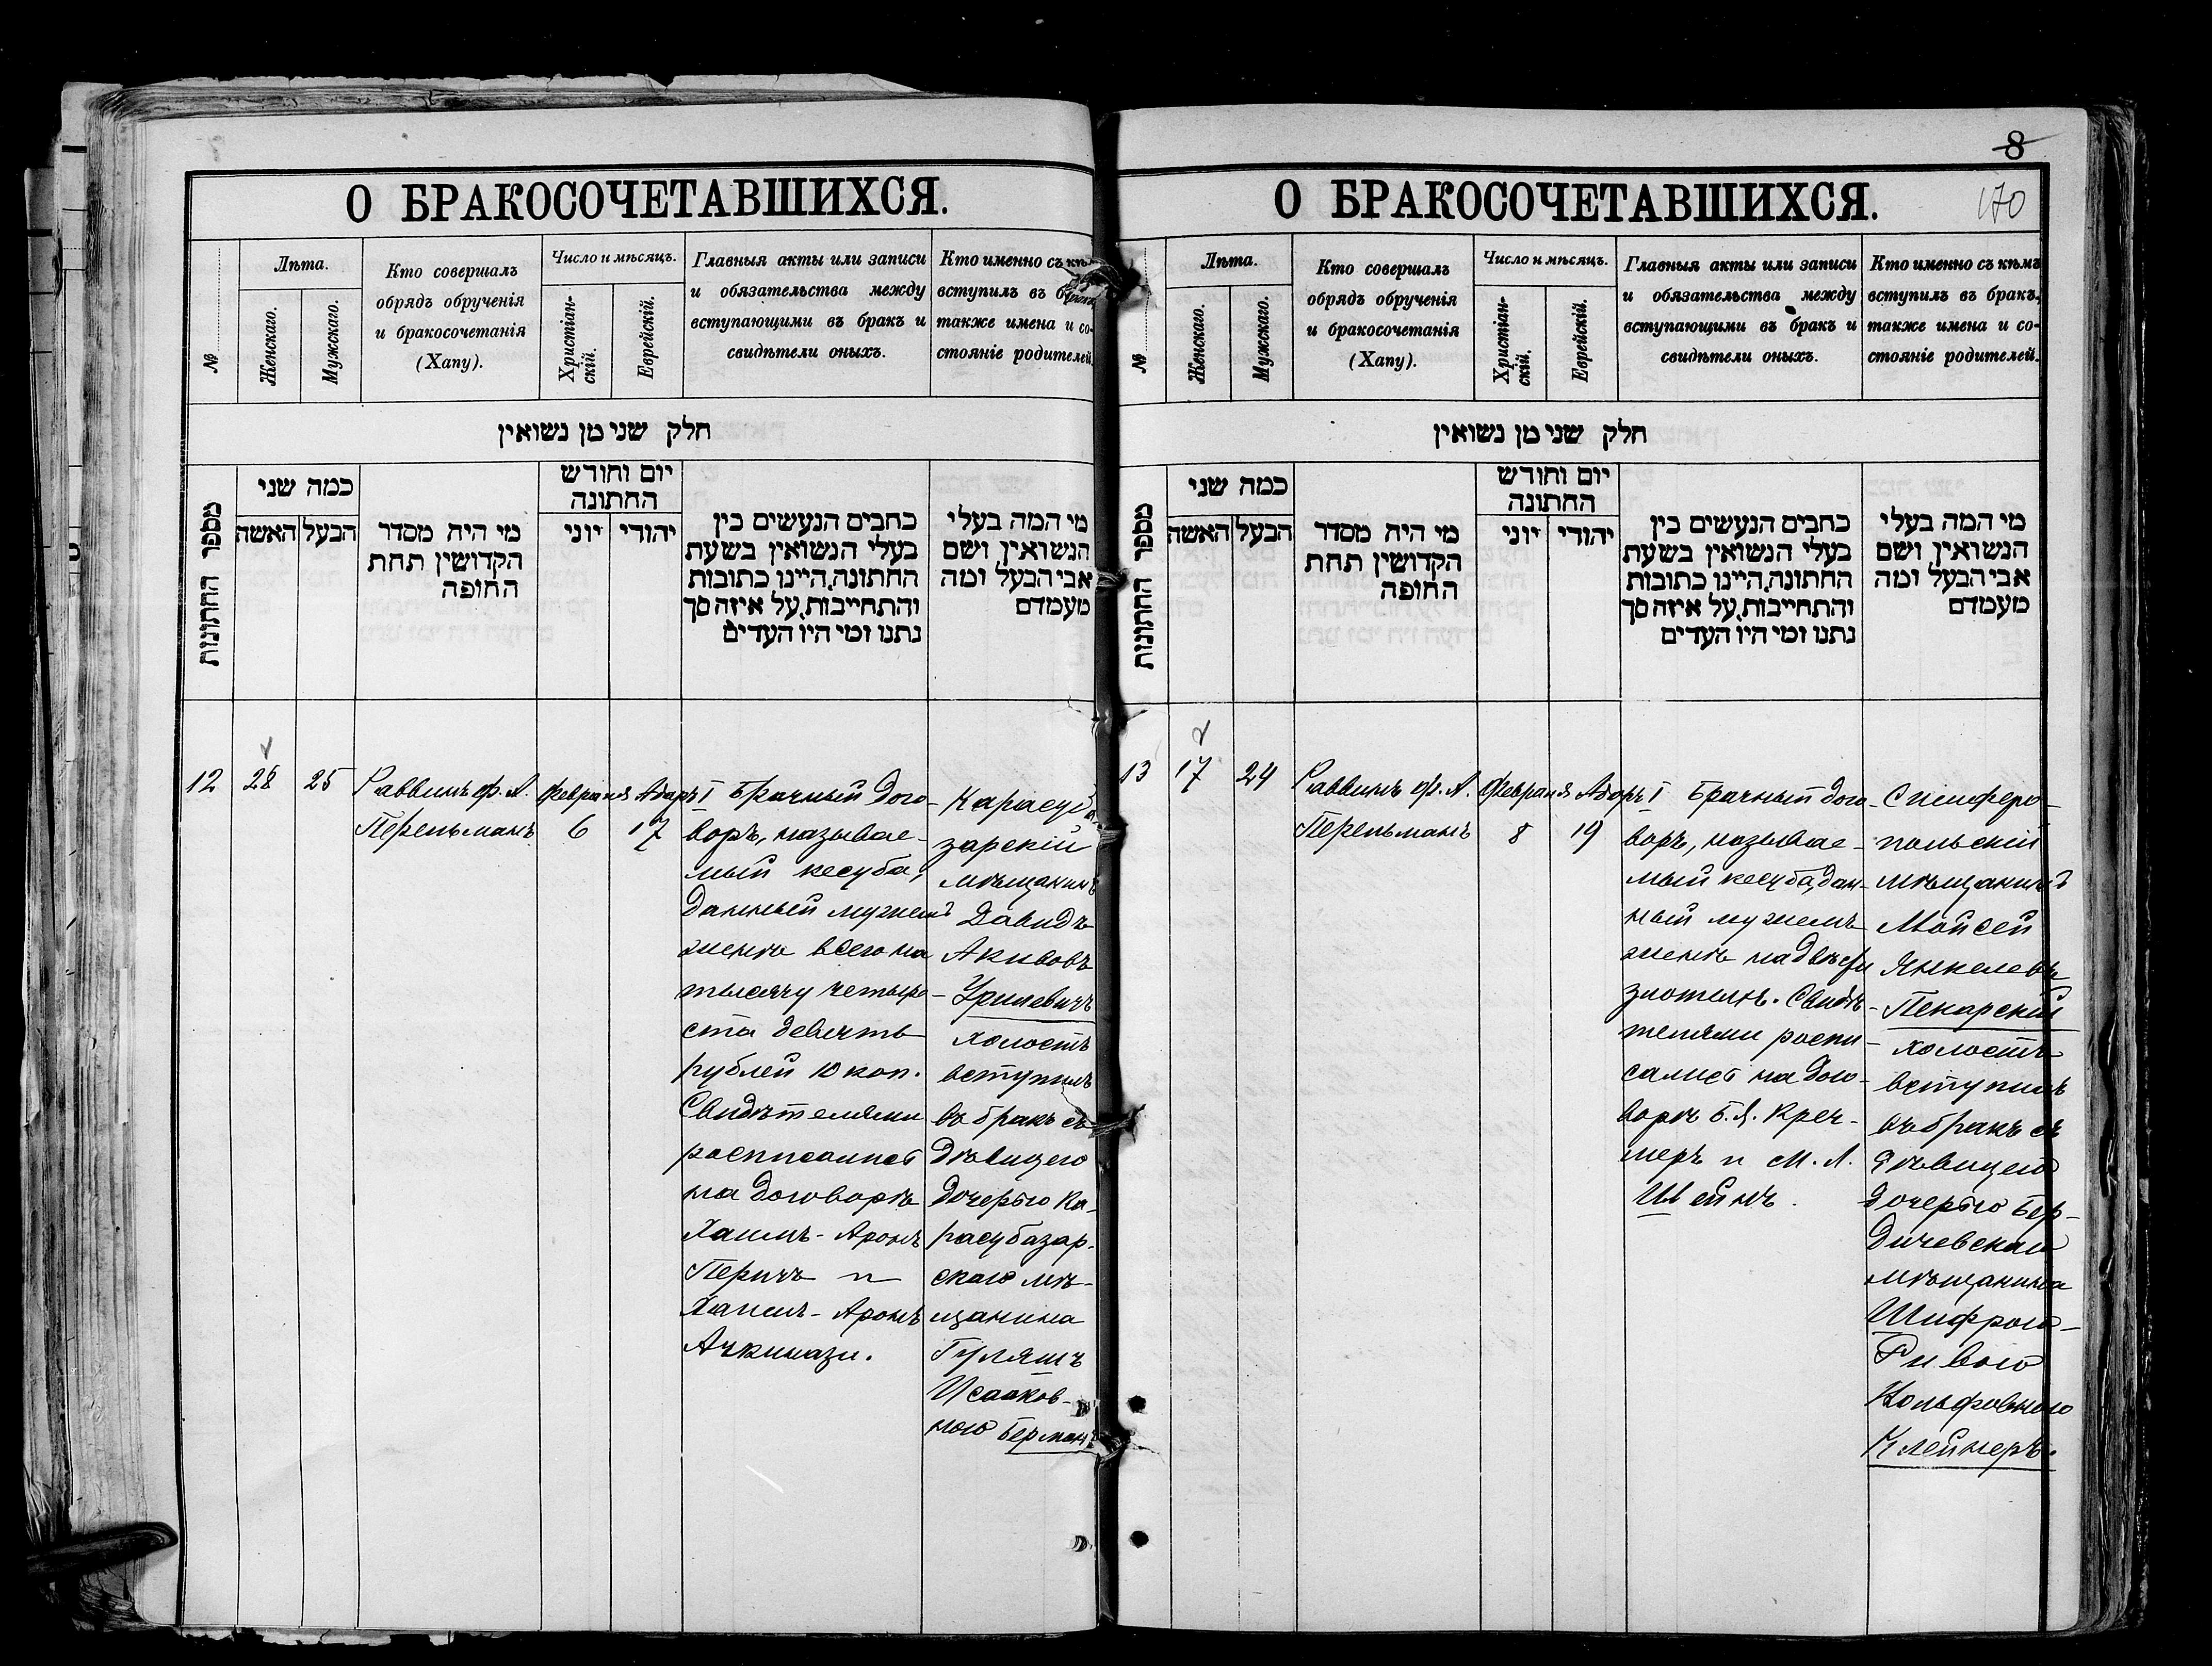 О БРАКОСОЧЕТАВШИХСЯ.
№
Лѣта.
Женскаго.
Мужскаго.
Кто совершалъ
обрядъ обрученія
и бракосочетанія
(Хапу).
Число и мѣсяцъ.
Христіан-
скій.
Еврейскій.
Главныя акты или записи
и обязательства между
вступающими въ бракъ и
свидѣтели оныхъ.
Кто именно съ кѣмъ
вступилъ въ бракъ,
также имена и со-
стояніе родителей.
חלק שני מן נשואין
מספר החתונות
כמה שני
האשה
הבעל
מי היה מסדר
הקדושין תחת
החופה
יום וחודש
החתונה
יוני
יהודי
כתבים הנעשים בין
בעלי הנשואין בשעת
החתונה, היינו כתובות
והתחייבות, על איזה סך
נתנו ומי היו העדים
מי המה בעלי
הנשואין ושם
אבי הבעל ומה
מעמדם
12
28
25
Раввинъ Ф. А.
Перельманъ
Февраля
6
Адаръ I
17
Брачный дого-
воръ, называе-
мый кесуба,
данный мужемъ
женѣ всего на
тысячу четыре-
ста девять
рублей 10 коп.
Свидѣтелями
росписались
на договорѣ
Хаимъ-Аронъ
Перичъ и
Хаимъ-Аронъ
Ачкинази.
Карасуба-
зарскій
мѣщанинъ
Давидъ
Акивовъ
Уриевичъ
холостъ
вступилъ
въ бракъ съ
дѣвицею
дочерью Ка-
расубазар-
скаго мѣ-
щанина
Гулямъ
Исааков-
ною Берманъ
8
170
О БРАКОСОЧЕТАВШИХСЯ.
№
Лѣта.
Женскаго.
Мужскаго.
Кто совершалъ
обрядъ обрученія
и бракосочетанія
(Хапу).
Число и мѣсяцъ.
Христіан-
скій.
Еврейскій.
Главныя акты или записи
и обязательства между
вступающими въ бракъ и
свидѣтели оныхъ.
Кто именно съ кѣмъ
вступилъ въ бракъ,
также имена и со-
стояніе родителей.
חלק שני מן נשואין
מספר החתונות
כמה שני
האשה
הבעל
מי היה מסדר
הקדושין תחת
החופה
יום וחודש
החתונה
יוני
יהודי
כתבים הנעשים בין
בעלי הנשואין בשעת
החתונה, היינו כתובות
והתחייבות, על איזה סך
נתנו ומי היו העדים
מי המה בעלי
הנשואין ושם
אבי הבעל ומה
מעמדם
13
17
24
Раввинъ Ф. А.
Перельманъ
Февраля
8
Адаръ I
19
Брачный дого-
воръ, называе-
мый кесуба, дан-
ный мужемъ
женѣ на двѣсти
злотыхъ. Свидѣ-
телями роспи-
сались на дого-
ворѣ Б. Я. Креч-
меръ и М. Л.
Штейнъ.
Симферо-
польскій
мѣщанинъ
Мойсей
Янкелевъ
Пекарскій
холостъ
вступилъ
въ бракъ съ
дѣвицею
дочерью Бер-
дичевскаго
мѣщанина
Шифрою-
Ривою
Вольфовною
Клейнеръ.